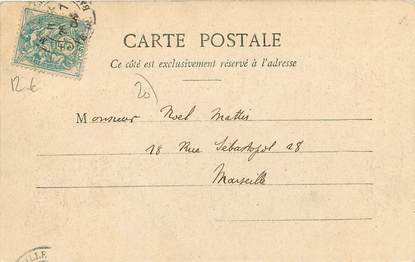 CARTE POSTALE
Ce côté est exclusivement réservé à l'adresse
12 €
20
Monsieur Noel Mattis
18 Rue Sebastopol 18
Marseille
ILLE